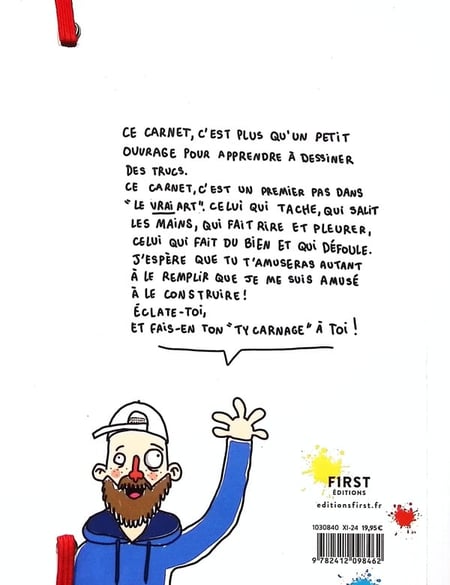 CE CARNET, C'EST PLUS QU'UN PETIT
OUVRAGE POUR APPRENDRE À DESSINER
DES TRUCS.
CE CARNET, C'EST UN PREMIER PAS DANS
"LE VRAI ART". CELUI QUI TACHE, QUI SALIT
LES MAINS, QUI FAIT RIRE ET PLEURER,
CELUI QUI FAIT DU BIEN ET QUI DÉFOULE.
J'ESPÈRE QUE TU T'AMUSERAS AUTANT
À LE REMPLIR QUE JE ME SUIS AMUSÉ
À LE CONSTRUIRE!
ÉCLATE-TOI,
ET FAIS-EN TON "TY CARNAGE" À TOI!
FIRST
ÉDITIONS
editionsfirst.fr
1030840 XI-24 19,95€
9 782412 098462